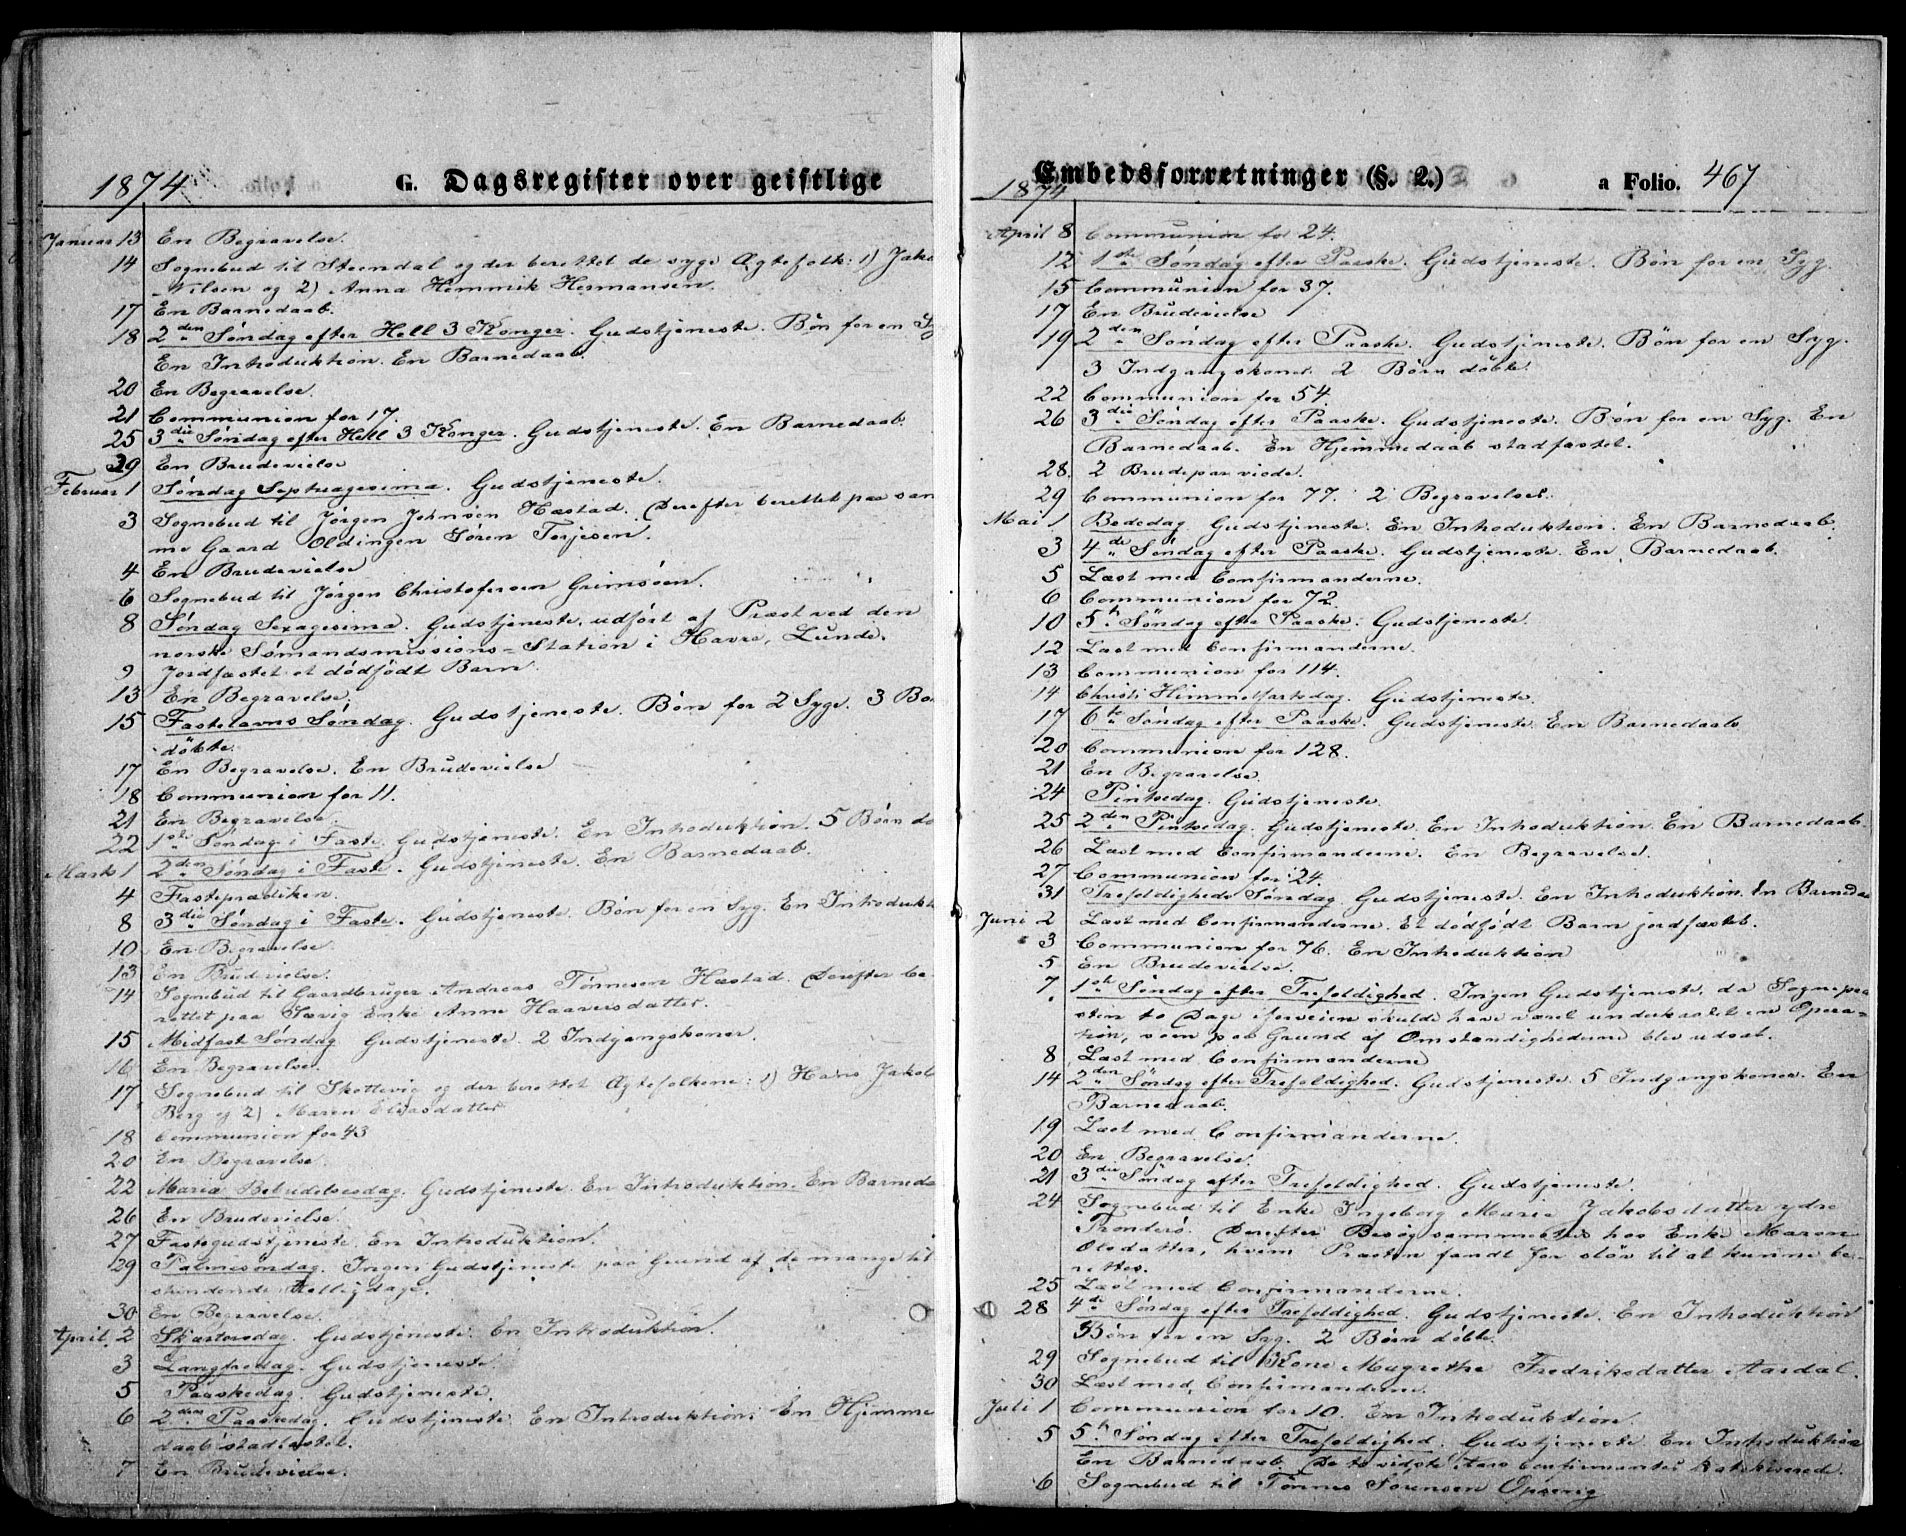 1874 G. Dagsregister over geistlige
Januar 13 En Begravelse.
14 Sognebud til Steendal og der berettet de syge Ægtefolk: 1) Jako
Nilsen og 2) Anna Hermansen.
17 En Barnedaab.
18 2den Søndag efter Hell 3 Konger. Gudstjeneste. Bøn for en Sy
En Introduktion. En Barnedaab.
20 En Begravelse.
21 Communion for 17.
25 3die Søndag efter Hell 3 Konger. Gudstjeneste. En Barnedaab.
29 En Brudevielse
Februar 1 Søndag Septuagesima. Gudstjeneste.
3 Sognebud til Jørgen Johnsen Hæstad. Derefter berettet paa sam
me Gaard Oldingen Søren Terjesen.
4 En Brudevielse
6 Sognebud til Jørgen Christofersen Grimsøen.
8 Søndag Sexagesima. Gudstjeneste, udført af Præst ved den
norske Sømandsmissions=Station i Havre, Lunde.
9 Jordfæstet et dödfödt Barn.
13 En Begravelse.
15 Fastelavns Søndag. Gudstjeneste. Bøn for 2 Syge. 3 Bø
döbte.
17 En Begravelse. En Brudevielse
18 Communion for 11.
21 En Begravelse.
22 1ste Søndag i Faste. Gudstjeneste. En Introduktion. 5 Børn dö
Marts 1 2den Søndag i Faste. Gudstjeneste. En Barnedaab.
4 Fasteprædiken.
8 3die Søndag i Faste. Gudstjeneste. Bøn for en Syg. En Introdukt
10 En Begravelse.
13 En Brudevielse.
14 Sognebud til Gaardbruger Andreas Tønnesen Hæstad. Derefter be-
rettet paa Enke Anne Haaversdatter.
15 Midfast Søndag Gudstjeneste. 2 Indgangskoner.
16 En Begravelse.
17 Sognebud til Skottevig og der berettet Ægtefolkene: 1) Hans Jakob
Berg og 2) Maren Eliasdatter
18 Communion for 43
20 En Begravelse.
22 Mariæ Bebudelsesdag. Gudstjeneste. En Introduktion. En Barneda
26 En Brudevielse.
27 Fastegudstjeneste. En Introduktion.
29 Palmesøndag. Ingen Gudstjeneste paa Grund af de mange til
stundende Helligdage.
30 En Begravelse.
April 2 Skjærtorsdag. Gudstjeneste. En Introduktion.
3 Langfredag. Gudstjeneste.
5 Paaskedag. Gudstjeneste.
6 2den Paaskedag. Gudstjeneste. En Introduktion. En Hjemme
daab stadfæstet.
7 En Brudevielse.
1874 Embedsforretninger (§. 2.) a Folio. 467
April 8 Communion for 24.
12 1ste Søndag efter Paaske. Gudstjeneste. Bøn for en Syg.
15 Communion for 37.
17 En Brudevielse
19 2den Søndag efter Paaske. Gudstjeneste. Bøn for en Syg.
3 Indgangskoner. 2 Børn döbte.
22 Communion for 54.
26 3die Søndag efter Paaske. Gudstjeneste. Bøn for en Syg. En
Barnedaab. En Hjemmedaab stadfæstet.
28. 2 Brudepar viede.
29 Communion for 77. 2 Begravelser.
Mai 1 Bededag. Gudstjeneste. En Introduktion. En Barnedaab.
3 4de Søndag efter Paaske. Gudstjeneste. En Barnedaab.
5 Læst med Confirmanderne.
6 Communion for 72.
10 5te Søndag efter Paaske. Gudstjeneste.
12 Læst med Confirmanderne.
13 Communion for 114.
14 Christi Himmelfartsdag. Gudstjeneste.
17 6te Søndag efter Paaske. Gudstjeneste. En Barnedaab
20 Communion for 128.
21 En Begravelse.
24 Pintsedag. Gudstjeneste.
25 2den Pintsedag. Gudstjeneste. En Introduktion. En Barnedaab.
26 Læst med Confirmanderne. En Begravelse.
27 Communion for 24.
31 Trefoldigheds Søndag. Gudstjeneste. En Introduktion. En Barnedaa
Juni 2 Læst med Confirmanderne. Et dödfödt Barn jordfæstet.
3 Communion for 76. En Introduktion
5 En Brudevielse.
7 1ste Søndag efter Trefoldighed. Ingen Gudstjeneste, da Sognepræ
sten to Dage iforveien skulde have været underkastet en Opera-
tion, som paa Grund af Omstændighederne blev udsat.
8 Læst med Confirmanderne
14 2den Søndag efter Trefoldighed. Gudstjeneste. 5 Indgangskoner. En
Barnedaab.
19 Læst med Confirmanderne.
20 En Begravelse.
21 3die Søndag efter Trefoldighed. Gudstjeneste.
24 Sognebud til Enke Ingeborg Marie Jakobsdatter ydre
Tronderö. Derefter Besøg sammesteds hos Enke Maren
Olsdatter, hvem Præsten fandt for sløv til at kunne be-
rettes.
25 Læst med Confirmanderne.
28 4de Søndag efter Trefoldighed. Gudstjeneste. En Introduktion
Bøn for en Syg. 2 Børn döbte.
29 Sognebud til Kone Magrethe Fredriksdatter Aardal.
30 Læst med Confirmanderne.
Juli 1 Communion for 10. En Introduktion.
5 5te Søndag efter Trefoldighed. Gudstjeneste. En Introduktion
En Barnedaab. De to sidste Aars Confirmanter katekiserede.
6 Sognebud til Tønnes Sørensen Opsevig